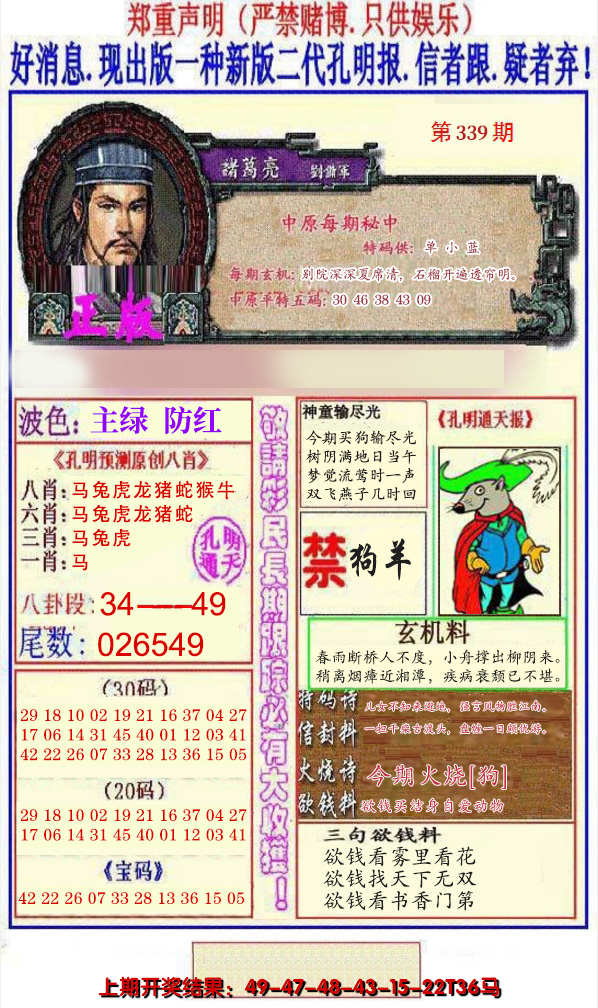 郑重声明（严禁赌博.只供娱乐）
好消息.现出版一种新版二代孔明报.信者跟.疑者弃！
第339期
諸葛亮 劉備軍
中原每期秘中
特码供：单小蓝
每期玄机：别院深深夏席清，石榴开遍透帘明。
中原平特五码：30 46 38 43 09
正版
波色：主绿 防红
《孔明预测原创八肖》
八肖：马兔虎龙猪蛇猴牛
六肖：马兔虎龙猪蛇
三肖：马兔虎
一肖：马
孔明
通天
八卦段：34——49
尾数：026549
（30码）
29 18 10 02 19 21 16 37 04 27
17 06 14 31 45 40 01 12 03 41
42 22 26 07 33 28 13 36 15 05
（20码）
29 18 10 02 19 21 16 37 04 27
17 06 14 31 45 40 01 12 03 41
《宝码》
42 22 26 07 33 28 13 36 15 05
敬請彩民長期跟踪必有大收獲！
神童输尽光
今期买狗输尽光
树阴满地日当午
梦觉流莺时一声
双飞燕子几时回
《孔明通天报》
禁 狗羊
玄机料
春雨断桥人不度，小舟撑出柳阴来。
稍离烟瘴近湘潭，疾病衰颓已不堪。
特码诗 儿女不知来避地，强言风物胜江南。
信封料
火烧诗 今期火烧[狗]
欲钱料 欲钱买洁身自爱动物
三句欲钱料
欲钱看雾里看花
欲钱找天下无双
欲钱看书香门第
上期开奖结果：49-47-48-43-15-22T36马